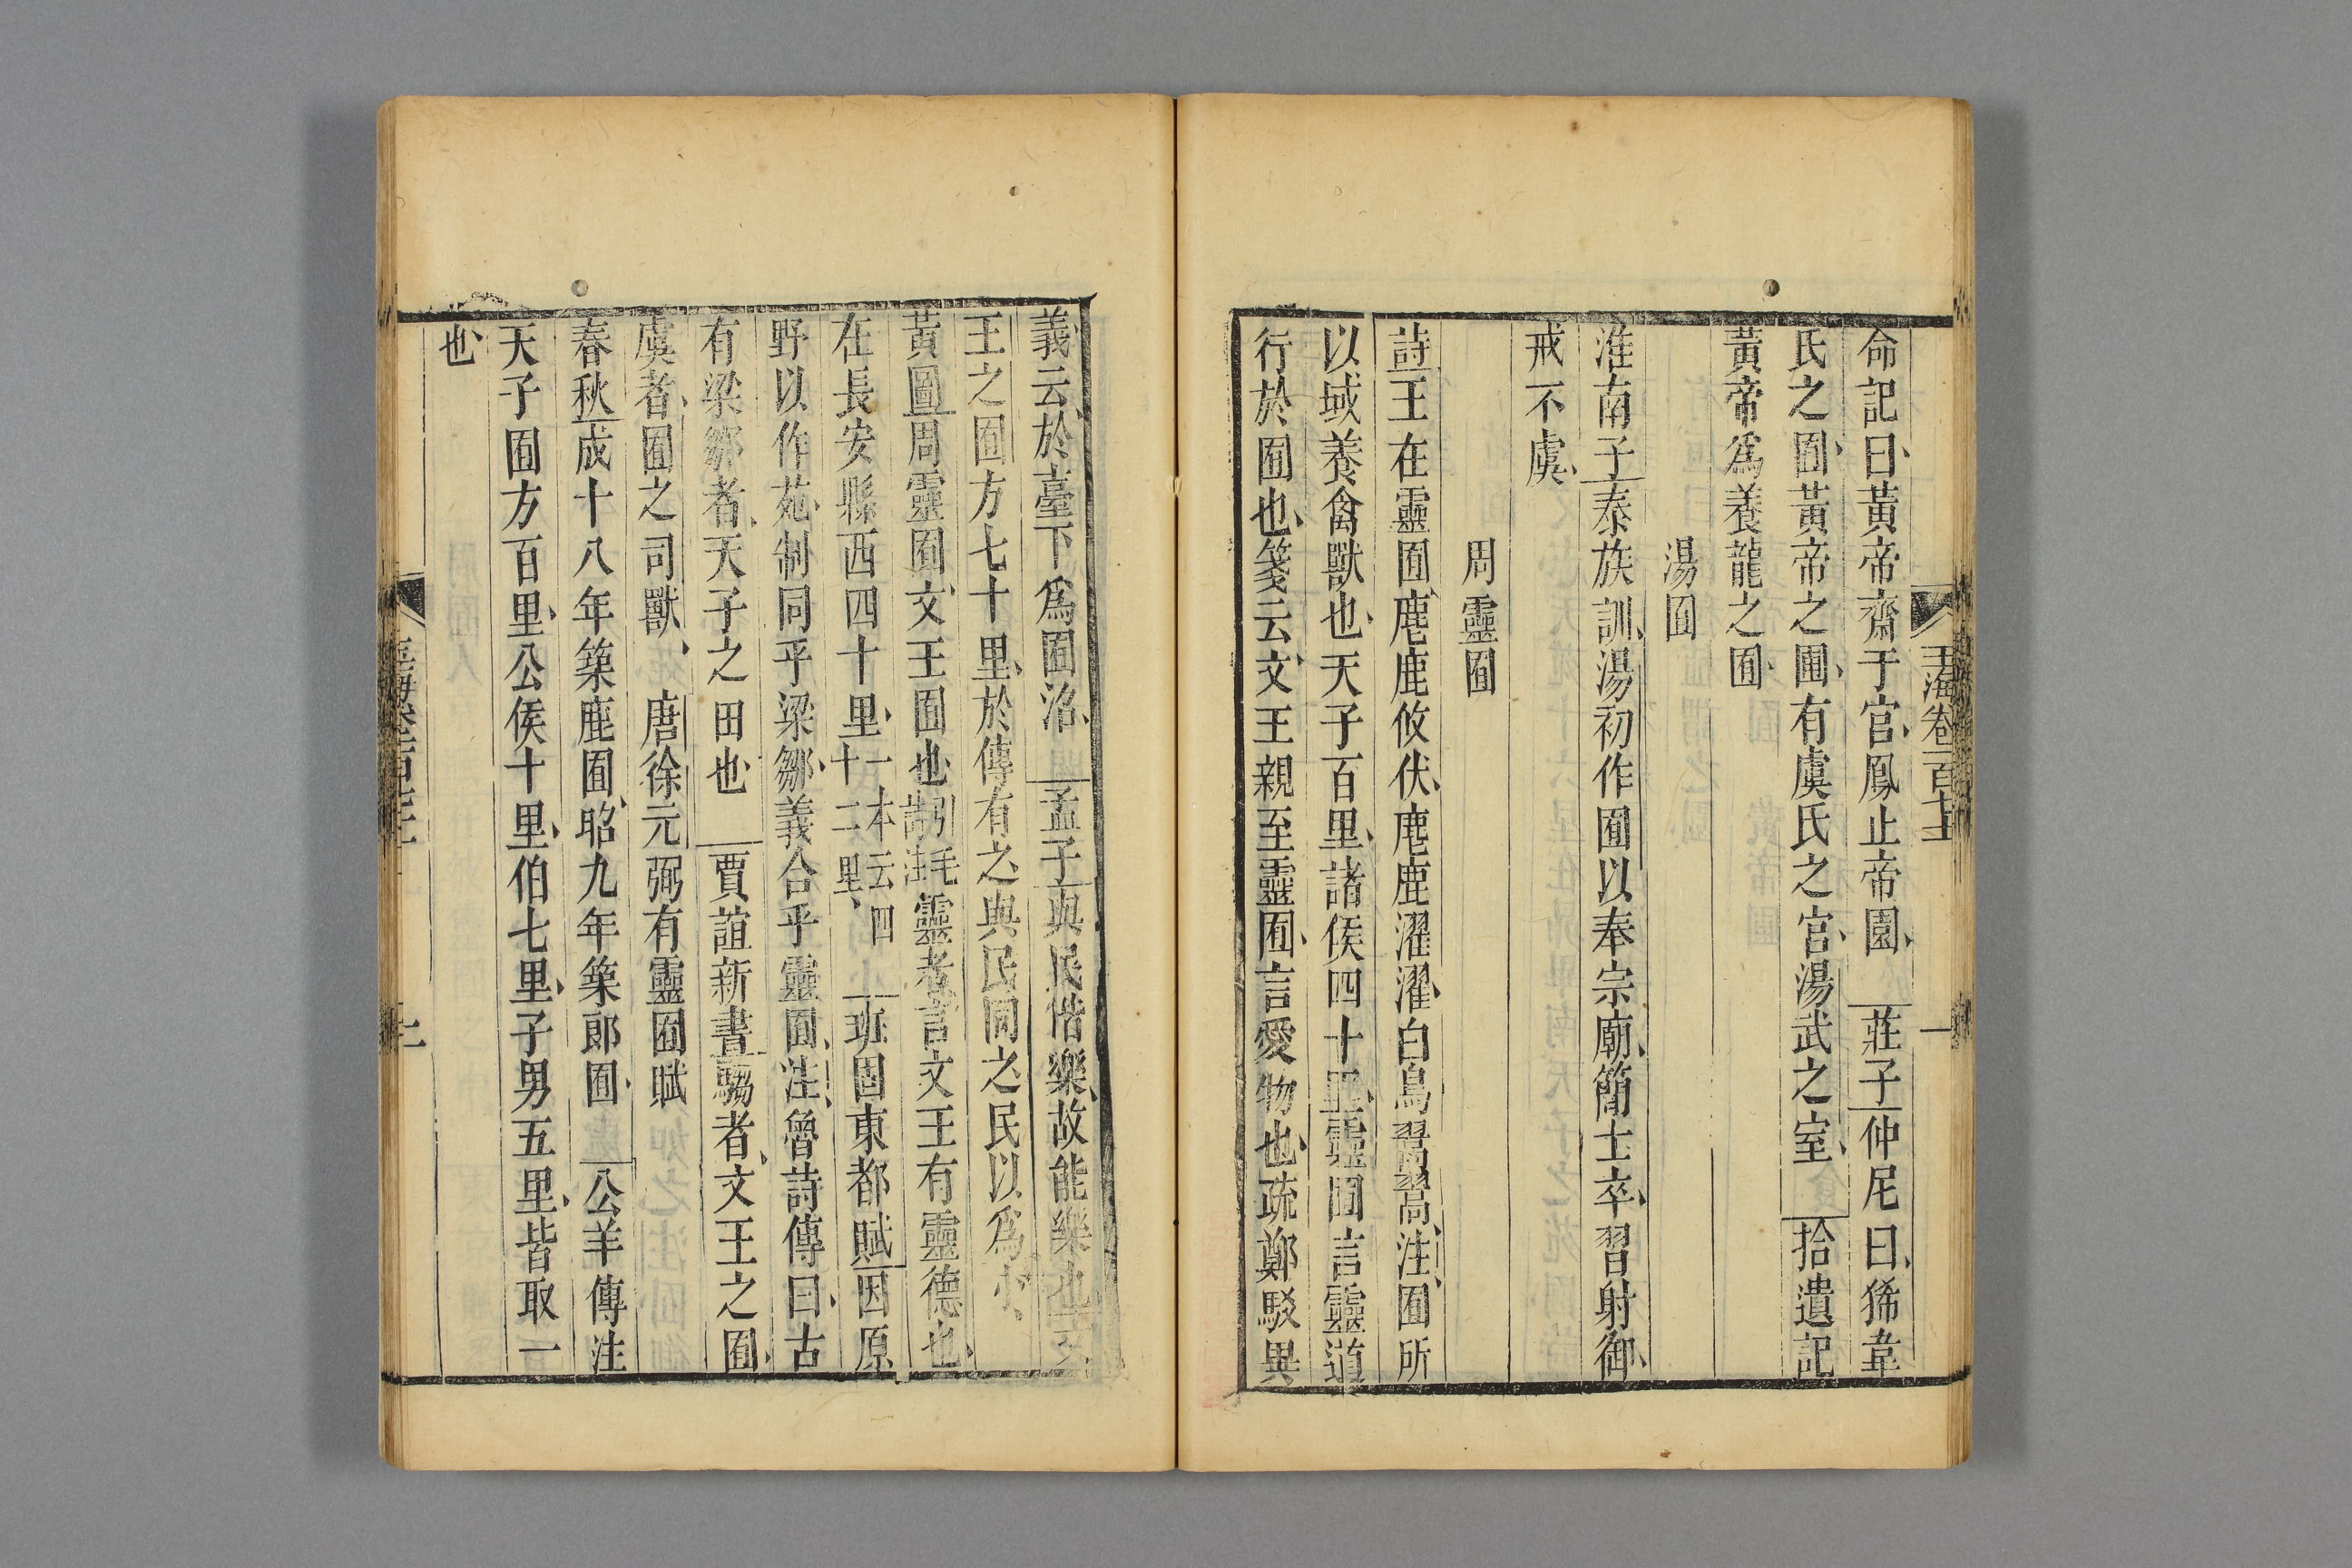 玉海卷一百七十一
命記曰黃帝齋于宮鳳止帝園 莊子仲尼曰狶韋
氏之囿黃帝之圃有虞氏之宮湯武之室 拾遺記
黃帝爲養龍之囿
湯囿
淮南子泰族訓湯初作囿以奉宗廟簡士卒習射御
戒不虞
周靈囿
詩王在靈囿麀鹿攸伏麀鹿濯濯白鳥翯翯注囿所
以域養禽獸也天子百里諸侯四十里靈囿言靈道
行於囿也箋云文王親至靈囿言愛物也疏鄭駁異
義云於臺下爲囿沼 孟子與民偕樂故能樂也文
王之囿方七十里於傳有之與民同之民以爲小
黃圖周靈囿文王囿也引毛詩注靈者言文王有靈德也
在長安縣西四十里一本云四十二里 班固東都賦因原
野以作苑制同乎梁鄒義合乎靈囿注魯詩傳曰古
有梁鄒者天子之田也 賈誼新書騶者文王之囿
虞者囿之司獸 唐徐元弼有靈囿賦
春秋成十八年築鹿囿昭九年築郎囿 公羊傳注
天子囿方百里公侯十里伯七里子男五里皆取一
也